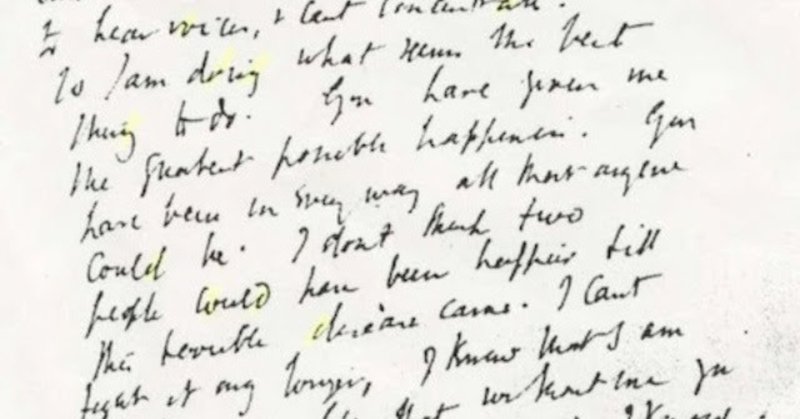 to hear voices, & cant concentrate.
So I am doing what seems the best
thing to do. You have given me
the greatest possible happiness. You
have been in every way all that anyone
could be. I dont think two
people could have been happier till
this terrible disease came. I cant
fight it any longer, I know that I am
that without me you